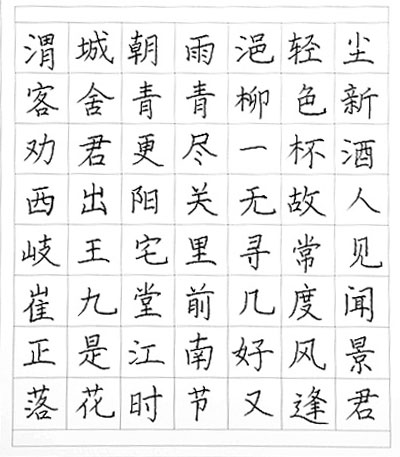 渭城朝雨浥轻尘
客舍青青柳色新
劝君更尽一杯酒
西出阳关无故人
岐王宅里寻常见
崔九堂前几度闻
正是江南好风景
落花时节又逢君